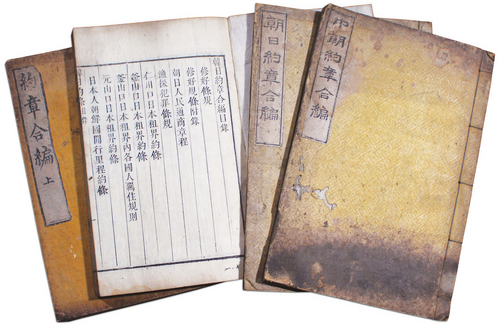 中朝約章合編
朝日約章合編
朝日約章合編目錄
修好條規
修好規條附錄
朝日人民通商章程
漁採犯罪條規
仁川口日本租界約條
釜山口日本租界約條
釜山口日本租界內各國人寓住規則
元山口日本租界約條
日本人朝鮮國間行里程約條
約章合編 上